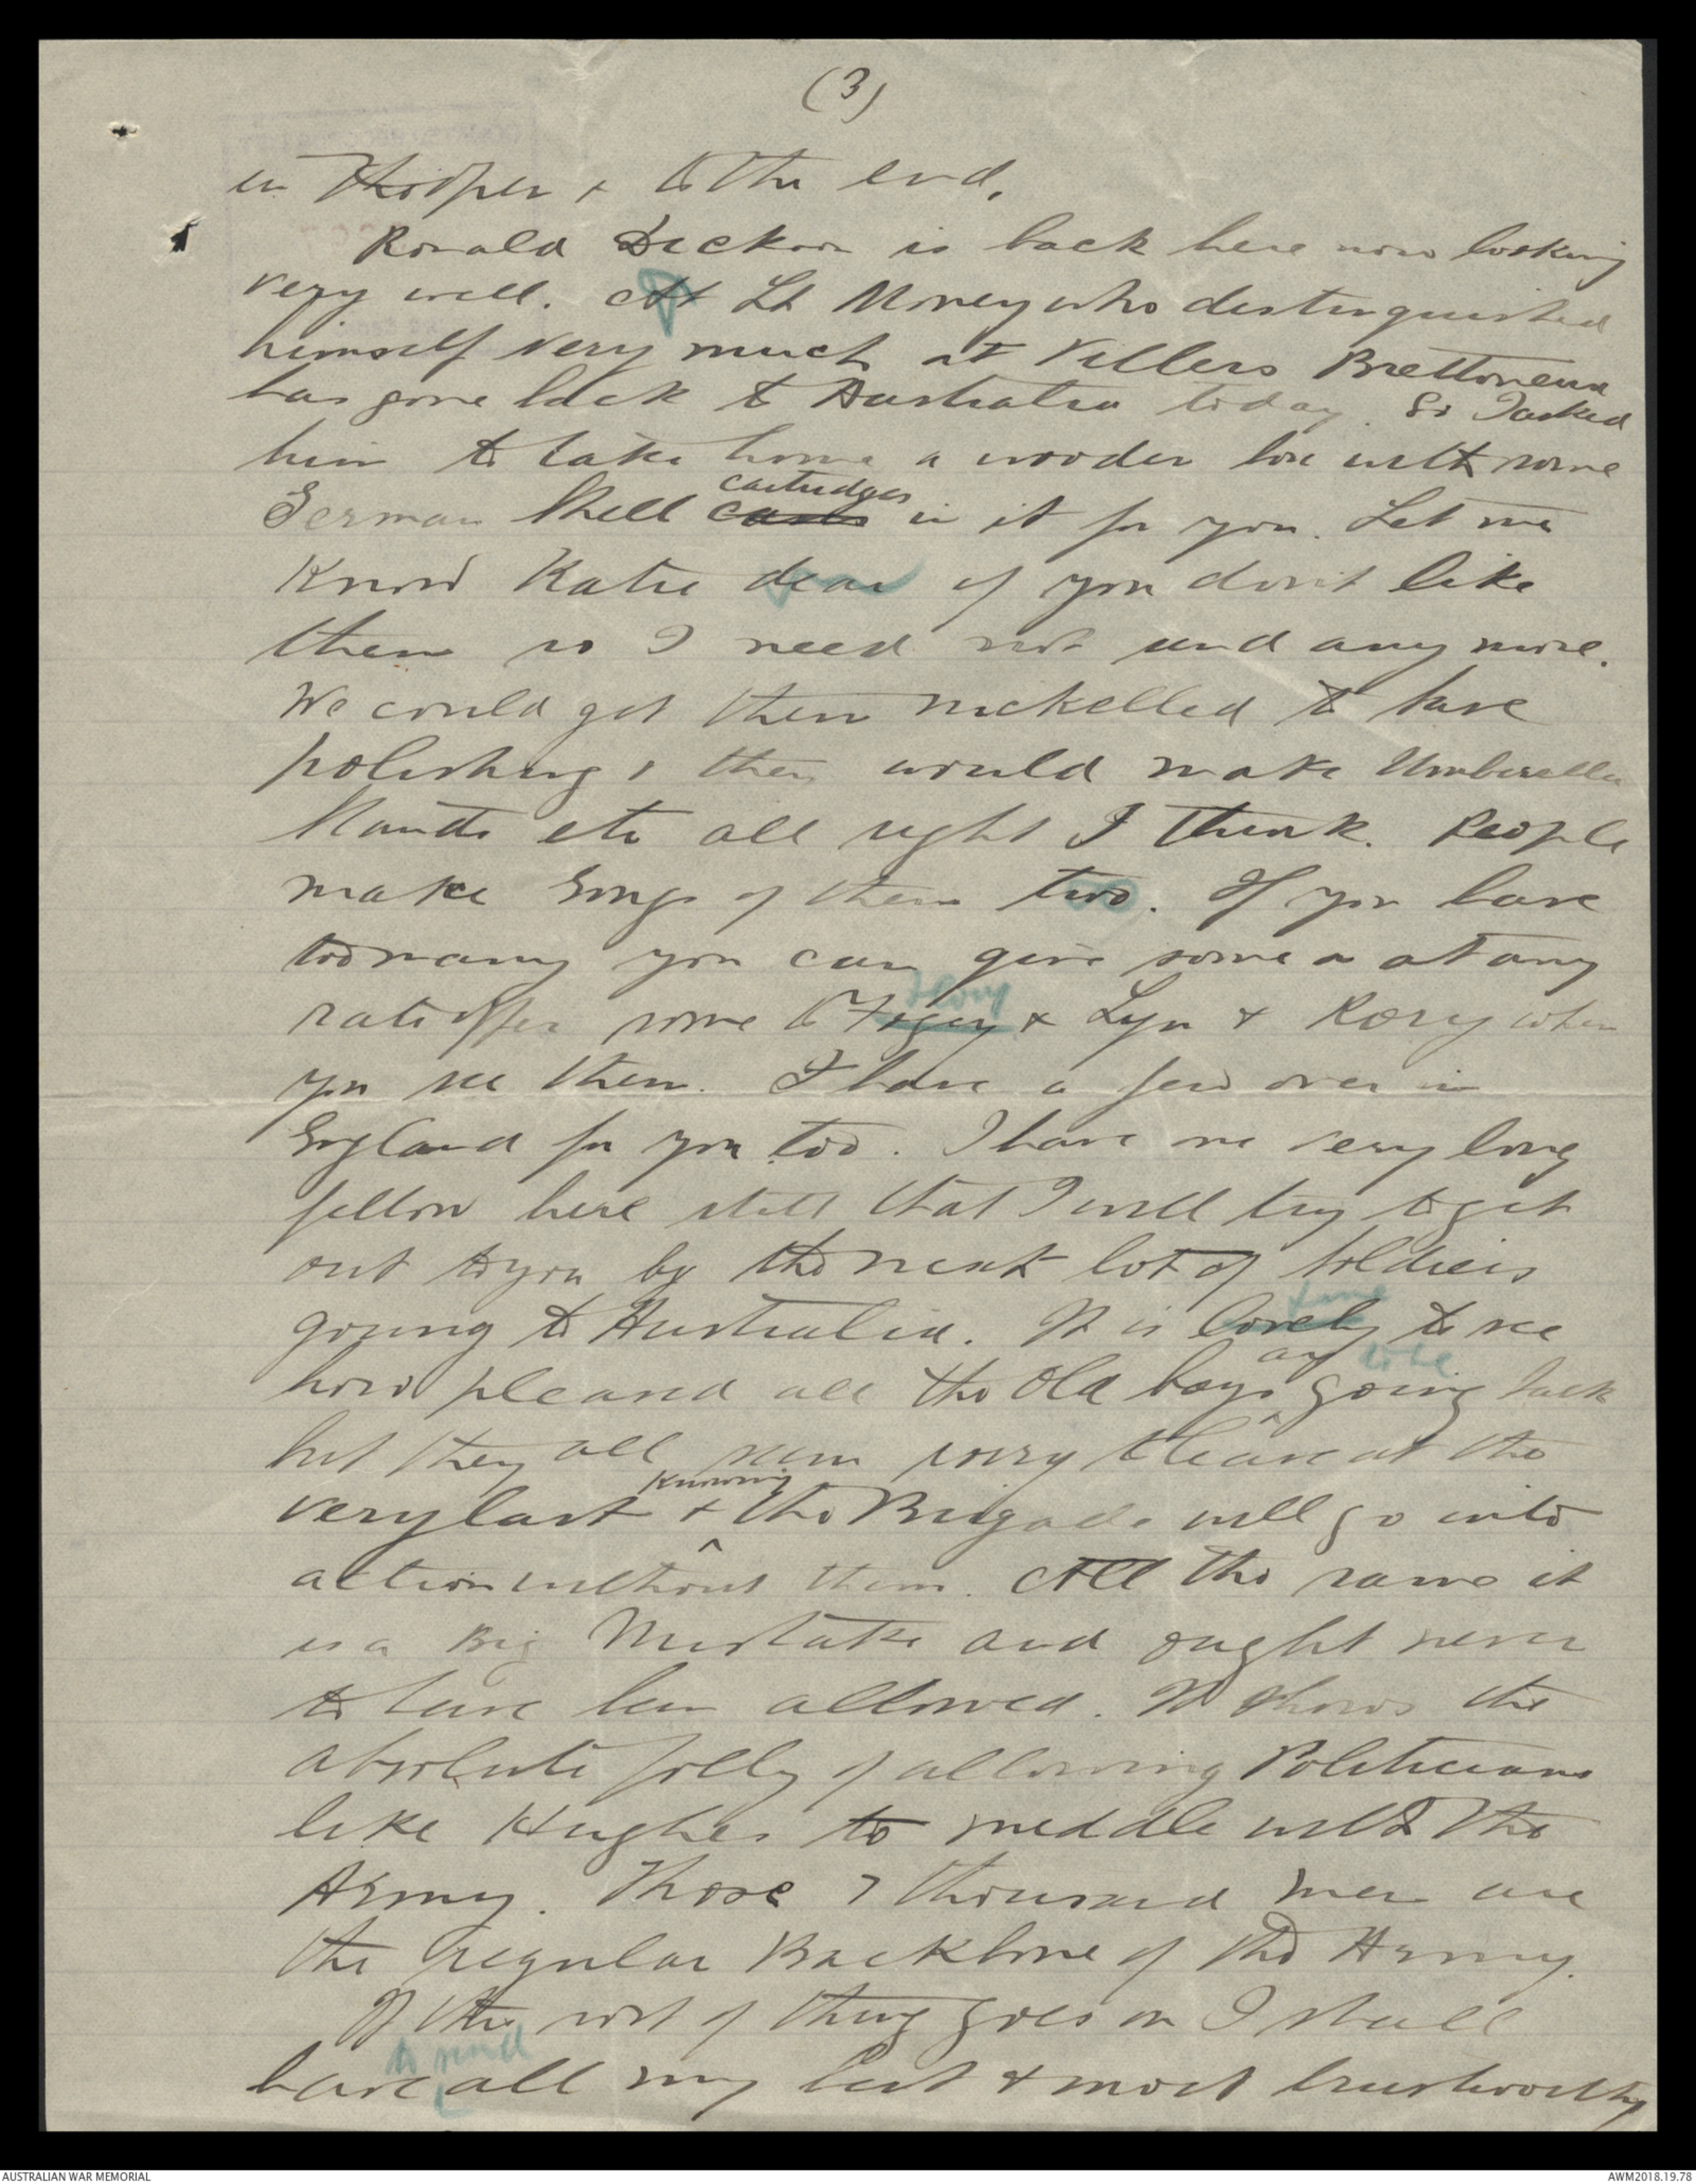 (3)
in & to the end.
Ronald Dickson is back here now looking
very well. A Lt Money who distinguished
himself very much at Villers Brettoneux
has gone back to Australia today. So I asked
him to take home a wooden box with some
cartridges
German Shell cases in it for you. Let me
Know Katie dear if you don't like
them so I need not send any more.
We could get them nickelled to save
polishing & they would make Umberella
Stands etc all right I think. People
make Gongs of them two. If you have
too many you can give some or at any
rate offer some to & Lyn & Rosey when
you see them. I have a few over in
England for you too. I have one very long
fellow here still that I will try to get
out to you by the next lot of Soldiers
fine
going to Australia. It is lovely to see
are to be
how pleased all the old boys going back
but they all seem sorry to leave at the
knowing
very last & the Brigade will go into
action without them. All the same it
is a Big Mistake and ought never
to have been allowed. It shows the
absolute folly of allowing Politicians
like Hughes to meddle with the
Army. Those 7 thousand men are
the regular Backbone of the Army.
If this sort of thing goes on I shall
to send
have all my best & most trustworthy
AUSTRALIAN WAR MEMORIAL
AWM2018.19.78